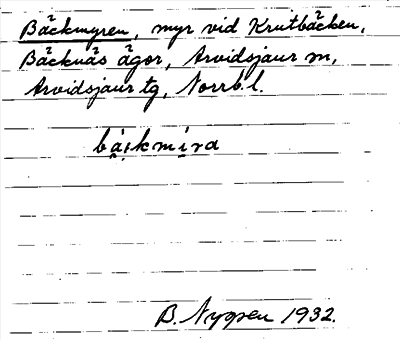 Bäckmyren, myr vid Krutbäcken,
Bäcknäs ägor, Arvidsjaur m,
Arvidsjaur tg, Norrb. l.
B. Nygren 1932.